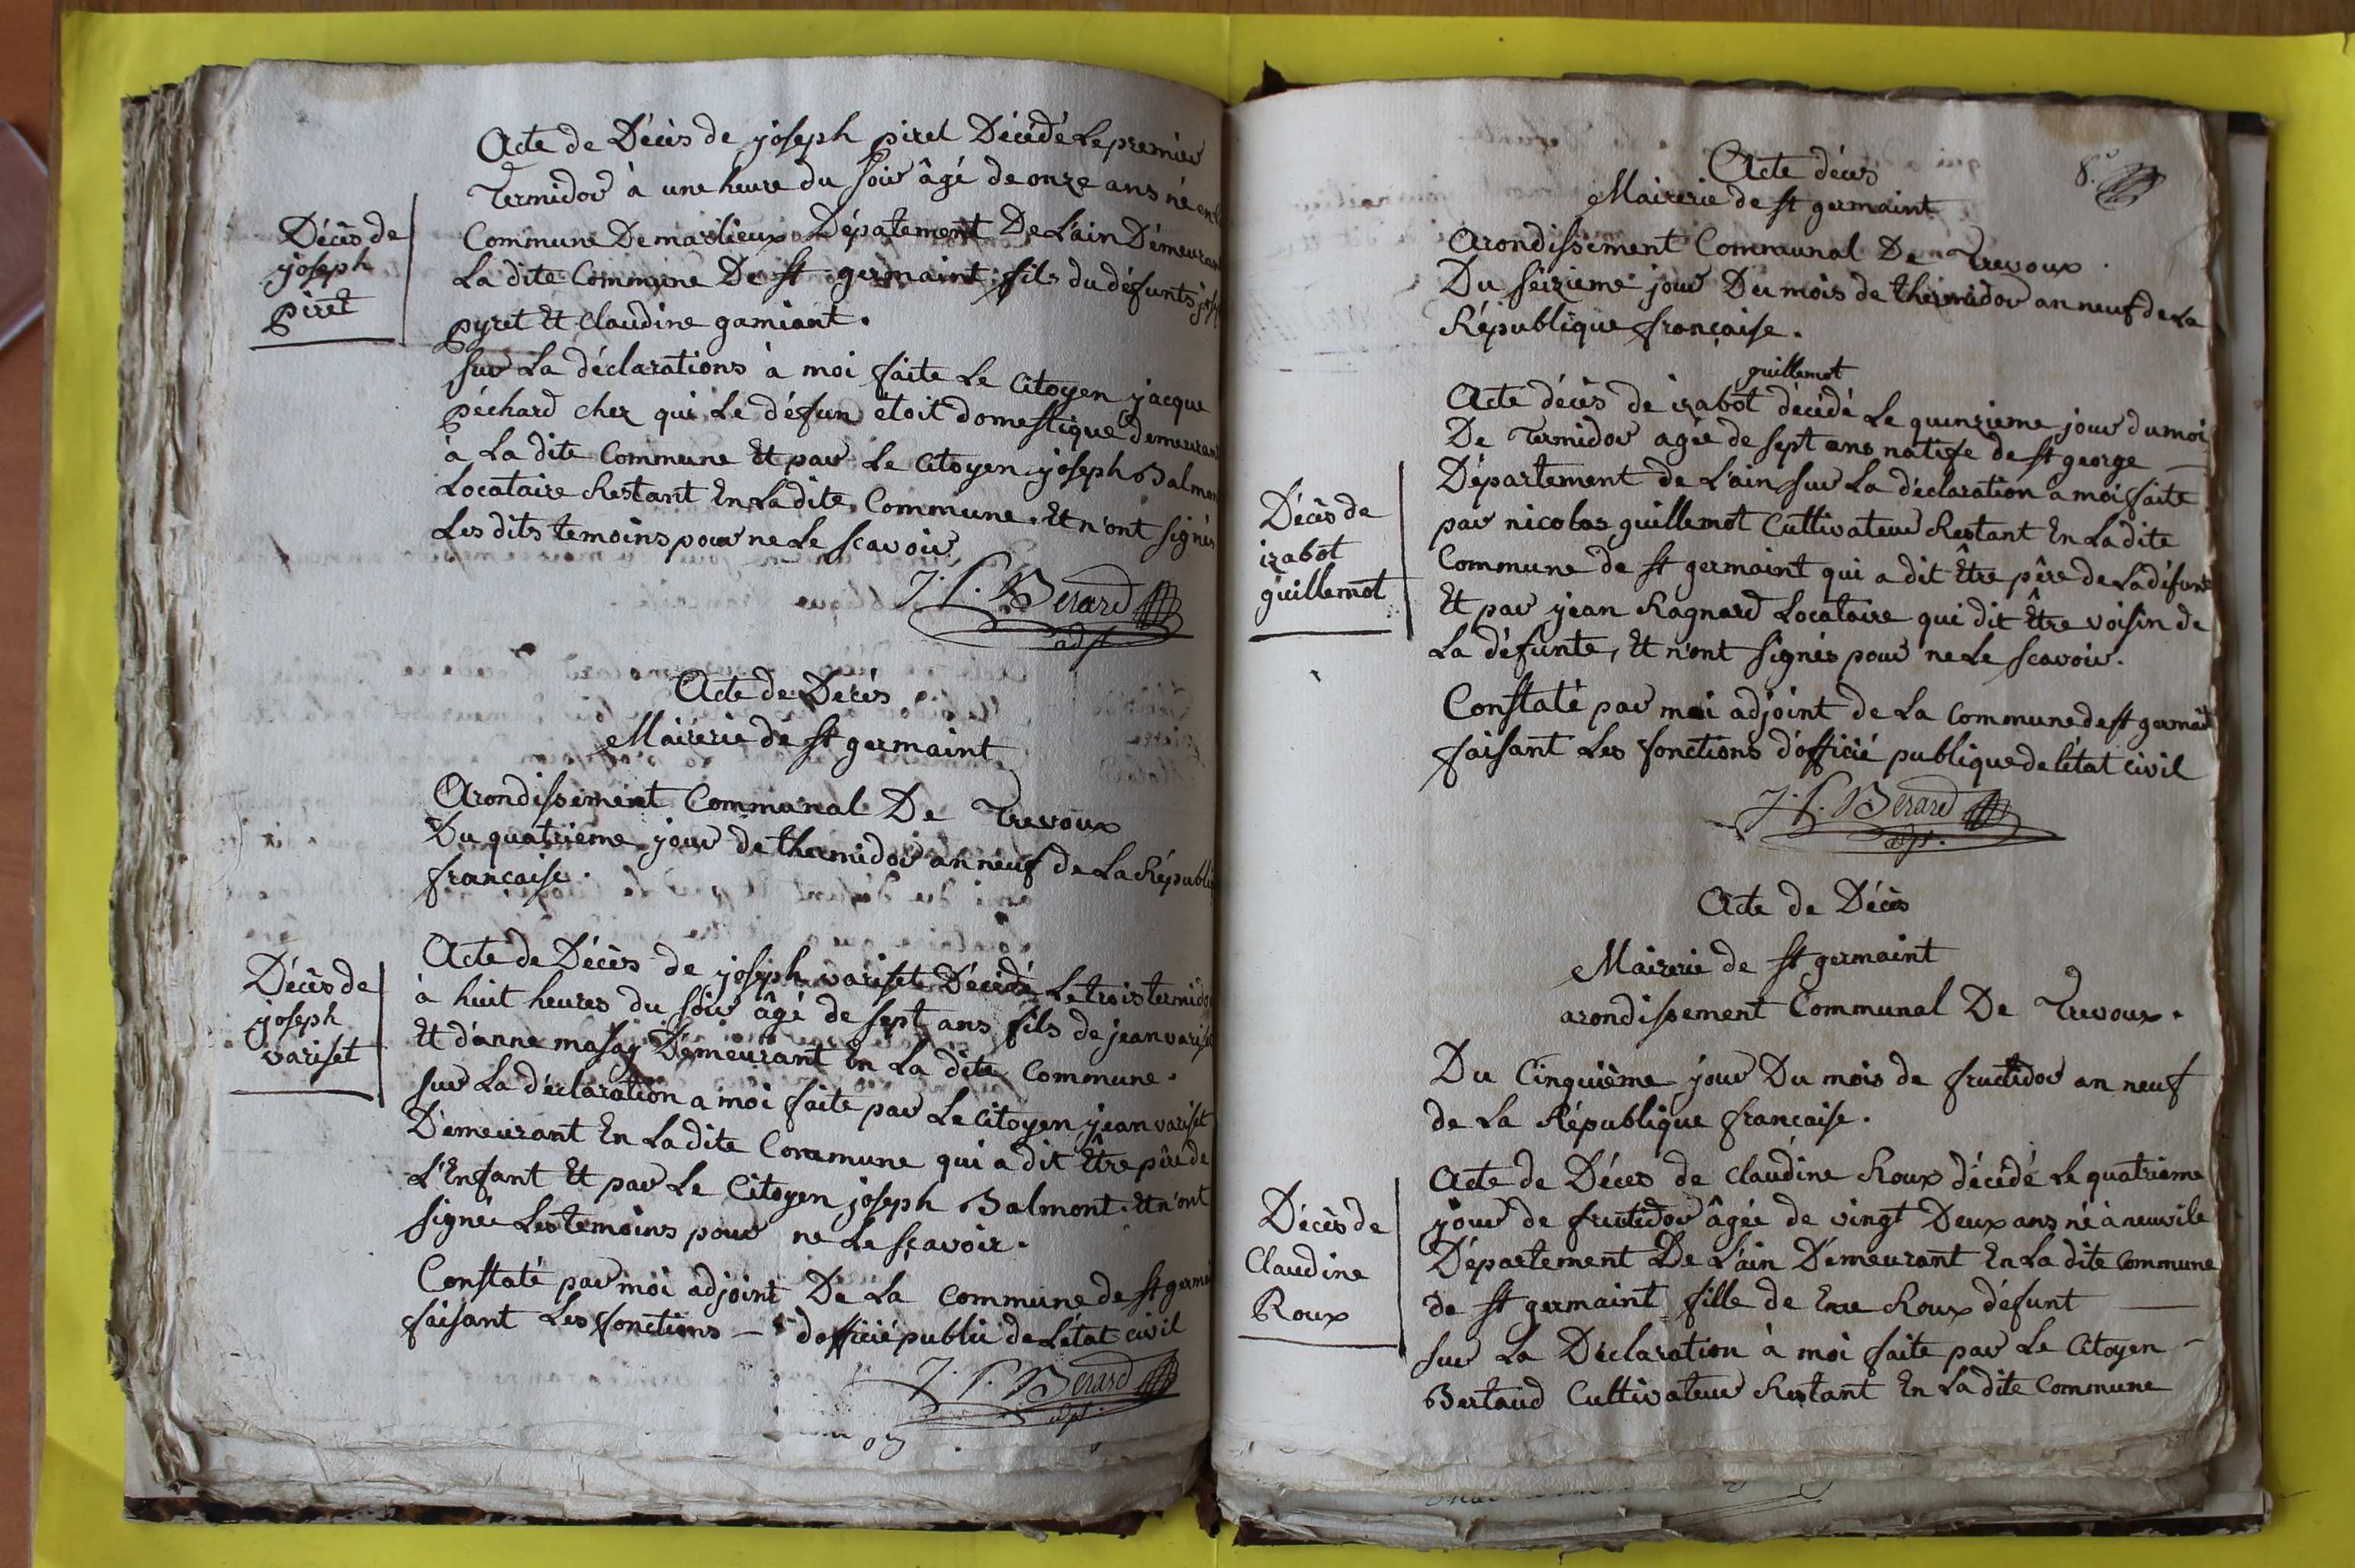 Acte de Décès de joseph piret Décédé Le premier
Termidor à une heure du soir âgé de onze ans né en
Commune De marlieux Département De L'ain Demeurant
La dite Commune De st germaint fils du défunts
pyret Et Claudine gamiant.
Décès de
joseph
piret
sur La déclarations à moi faite Le Citoyen jacque
péchard chez qui Le défun étoit domestique demeurant
à La dite Commune Et par Le Citoyen joseph Balmon
Locataire Restant En Ladite Commune. Et n'ont signés
Les dits temoins pour ne Le scavoir
J. P. Berard
adjt
Acte de Décès
Mairerie de st germaint
Arondissement Communal De Trevoux
Du quatrieme jour de thermidor an neuf de La Républi
francaise.
Décès de
joseph
variset
Acte de Décès de joseph variset Décédé Le trois termido
à huit heures du soir âgé de sept ans fils de jean varis
Et d'anne masay Demeurant En La dite Commune.
sur La déclaration a moi faite par Le Citoyen jean variset
Demeurant En Ladite Commune qui a dit Être père de
L'Enfant Et par Le Citoyen joseph Balmont. Et n'ont
signée Les temoins pour ne Le sçavoir.
Constaté par moi adjoint De La Commune de st germ
faisant Les fonctions — d'officié public de Létat civil
J. P. Berard
adjt.
8.
Acte décès
Mairerie de st germaint
Arondissement Communal De Trevoux.
Du seizieme jour Du mois de thermidor an neuf de La
République française.
guillemot
Acte décès de izabot décédé Le quinzieme jour du moi
De Termidor agée de sept ans natife de st george —
Département de L'ain sur La déclaration a moi faite
par nicolas guillemot Cultivateur Restant En Ladite
Commune de st germaint qui a dit Être père de La défunte
Et par jean Ragnard Locataire qui dit Être voisin de
La défunte, Et n'ont signés pour ne Le scavoir.
Décès de
izabot
guillemot
Constaté par moi adjoint de La Commune de st germaint
faisant Les fonctions d'officié publique de létat civil
J. P. Berard
adjt.
Acte de Décès
Mairerie de st germaint
arondissement Communal De Trevoux.
Du Cinquième jour Du mois de fructidor an neuf
de La République francaise.
Acte de Déces de Claudine Roux décédé Le quatrieme
jour de fructidor âgée de vingt Deux ans né à neuvile
Département De L'ain Demeurant En La dite Commune
de st germaint fille de Roux défunt —
sur La Déclaration à moi faite par Le Citoyen —
Bertaud Cultivateur Restant En Ladite Commune
Décès de
Claudine
Roux